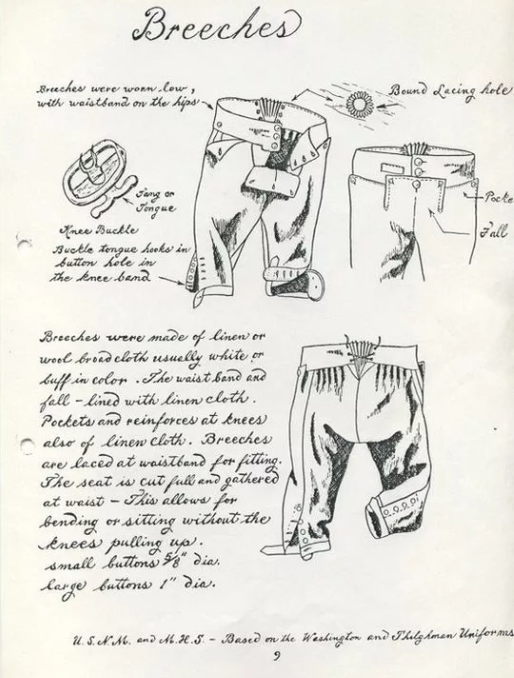 Breeches
Breeches were worn low,
with waistband on the hips
Bound Lacing hole
Tang or
Tongue
Knee Buckle
Buckle tongue hooks in
button hole in
the knee band
Pocke
Fall
Breeches were made of linen or
wool broadcloth usually white or
buff in color. The waist band and
fall - lined with linen cloth.
Pockets and reinforces at knees
also of linen cloth. Breeches
are laced at waistband for fitting.
The seat is cut full and gathered
at waist - This allows for
bending or sitting without the
knees pulling up.
small buttons 5/8" dia.
large buttons 1" dia.
U.S.N.M. and M.H.S. - Based on the Washington and Thilghman Uniforms
9